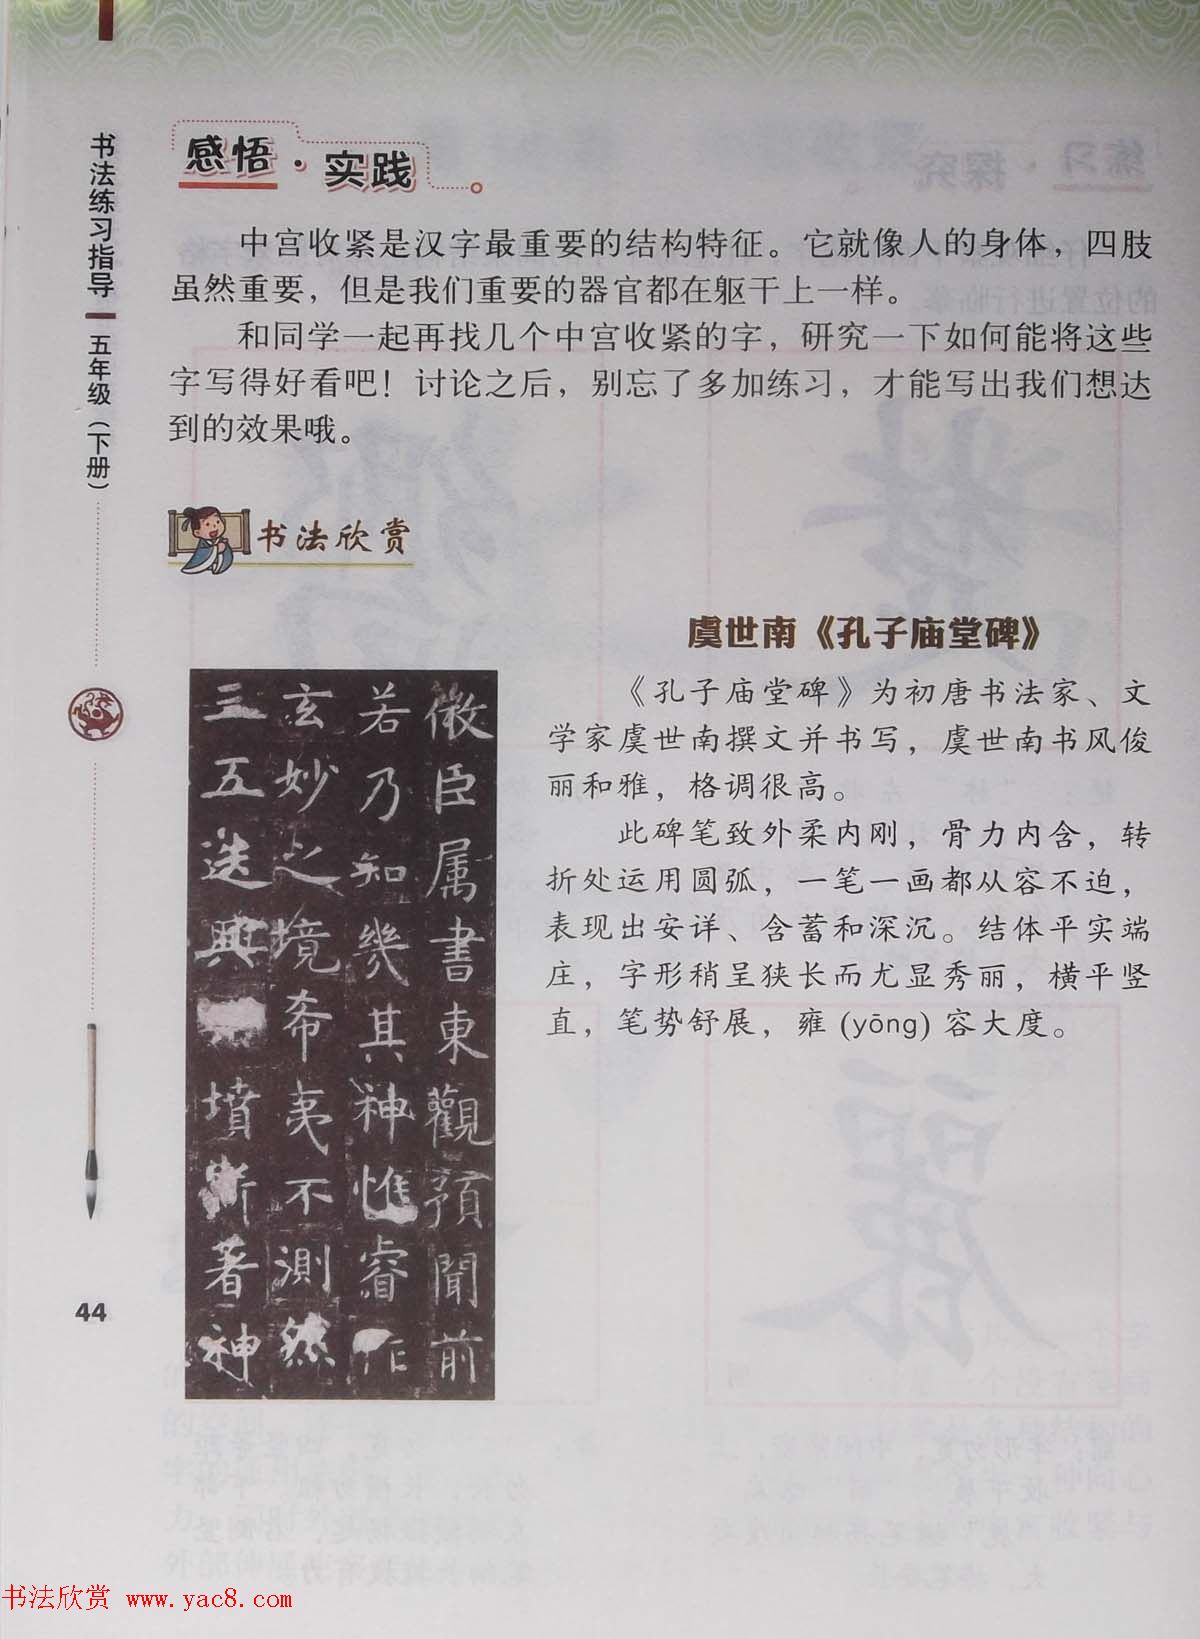 书法练习指导 五年级（下册）
感悟·实践
中宫收紧是汉字最重要的结构特征。它就像人的身体，四肢
虽然重要，但是我们重要的器官都在躯干上一样。
和同学一起再找几个中宫收紧的字，研究一下如何能将这些
字写得好看吧！讨论之后，别忘了多加练习，才能写出我们想达
到的效果哦。
书法欣赏
虞世南《孔子庙堂碑》
《孔子庙堂碑》为初唐书法家、文
学家虞世南撰文并书写，虞世南书风俊
丽和雅，格调很高。
此碑笔致外柔内刚，骨力内含，转
折处运用圆弧，一笔一画都从容不迫，
表现出安详、含蓄和深沉。结体平实端
庄，字形稍呈狭长而尤显秀丽，横平竖
直，笔势舒展，雍 (yōng) 容大度。
微臣属書東觀預聞前
若乃知幾其神惟睿作
玄妙之境希夷不測然
三五迭興墳斯著神
44
书法欣赏 www.yac8.com